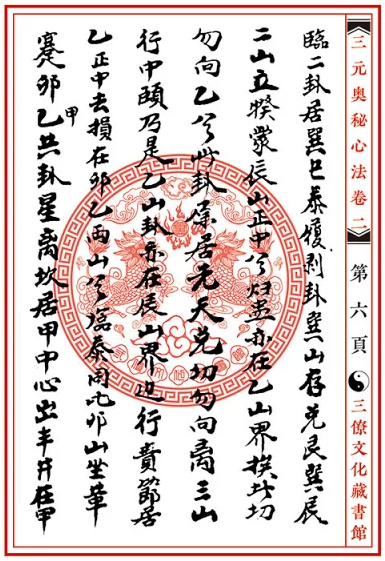 三元奧秘心法卷二
第六頁
三僚文化藏書館
臨二卦居巽巳泰復剥卦巽山存兌艮巽辰
二山立睽蒙辰山正中兮蠱亦在乙山界此切
勿向乙兮此卦原居先天兌切勿向离三山
行中頤乃是乙山卦亦在辰山界边行賁節居
乙正中去損在卯乙兩山兮泰同卯山坐革
蹇卯乙甲共卦星离坎居甲中心出丰井在甲